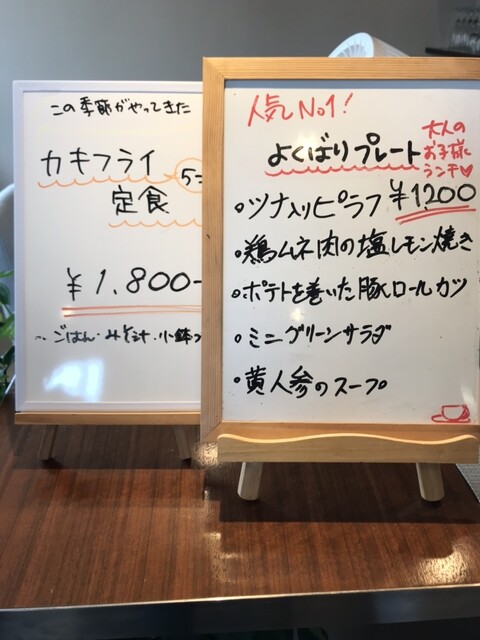 この季節がやってきた
カキフライ
5コ
定食
¥1,800-
ごはん・みそ汁・小鉢
人気No1!
よくばりプレート
大人の
お子様
ランチ
¥1200
・ツナ入りピラフ
・鶏ムネ肉の塩レモン焼き
・ポテトを巻いた豚ロールカツ
・ミニグリーンサラダ
・黄人参のスープ